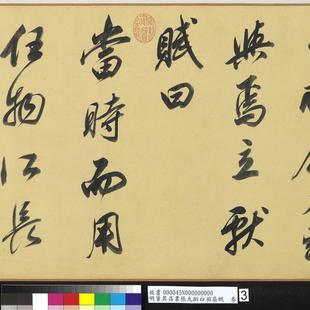 與焉立獻
賦曰
當時而用
任物所長
故書 000045N000000000
明董其昌書張九齡白羽扇賦 卷
3